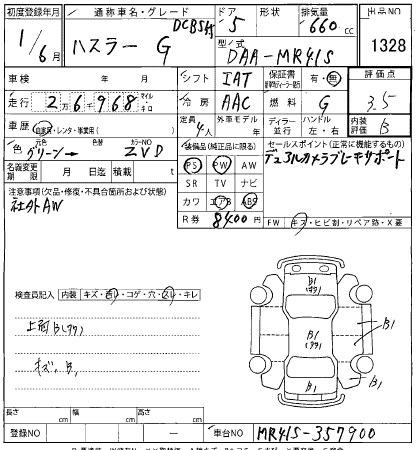 初度登録年月 通称車名・グレード ドア 形状 排気量 出品NO
1/6月 ハスラー G DCBSサポ 5 660cc 1328
型式 DAA-MR41S
車検 年 月 シフト IAT 保証書 有・無 評価点
走行 2万6千968 マイル キロ 冷房 AAC 燃料 G 3.5
車歴 自家用・レンタ・事業用( ) 定員 4人 外車モデル 年 ディーラー 並行 ハンドル 左・右 内装評価 B
色 グリーン→ 色替 カラーNO ZVD 装備品(純正品に限る) セールスポイント(正常に機能するもの)
デュアルカメラブレーキサポート
名義変更期限 月 日迄 積載 t PS PW AW
SR TV ナビ
注意事項(欠品・修復・不具合箇所および状態) カワ エアB ABS
社外AW R券 8400円 FW キズ・ヒビ割・リペア跡・X要
検査員記入 内装 キズ・汚レ・コゲ・穴・スレ・キレ
上面B(ﾀｸ1)
キズ、B1
B1
(ﾀｸ1)
B1
(ﾀｸ1)
B1
B1
B1
長さ cm 幅 cm 高さ cm
登録NO ー 車台NO MR41S-357900